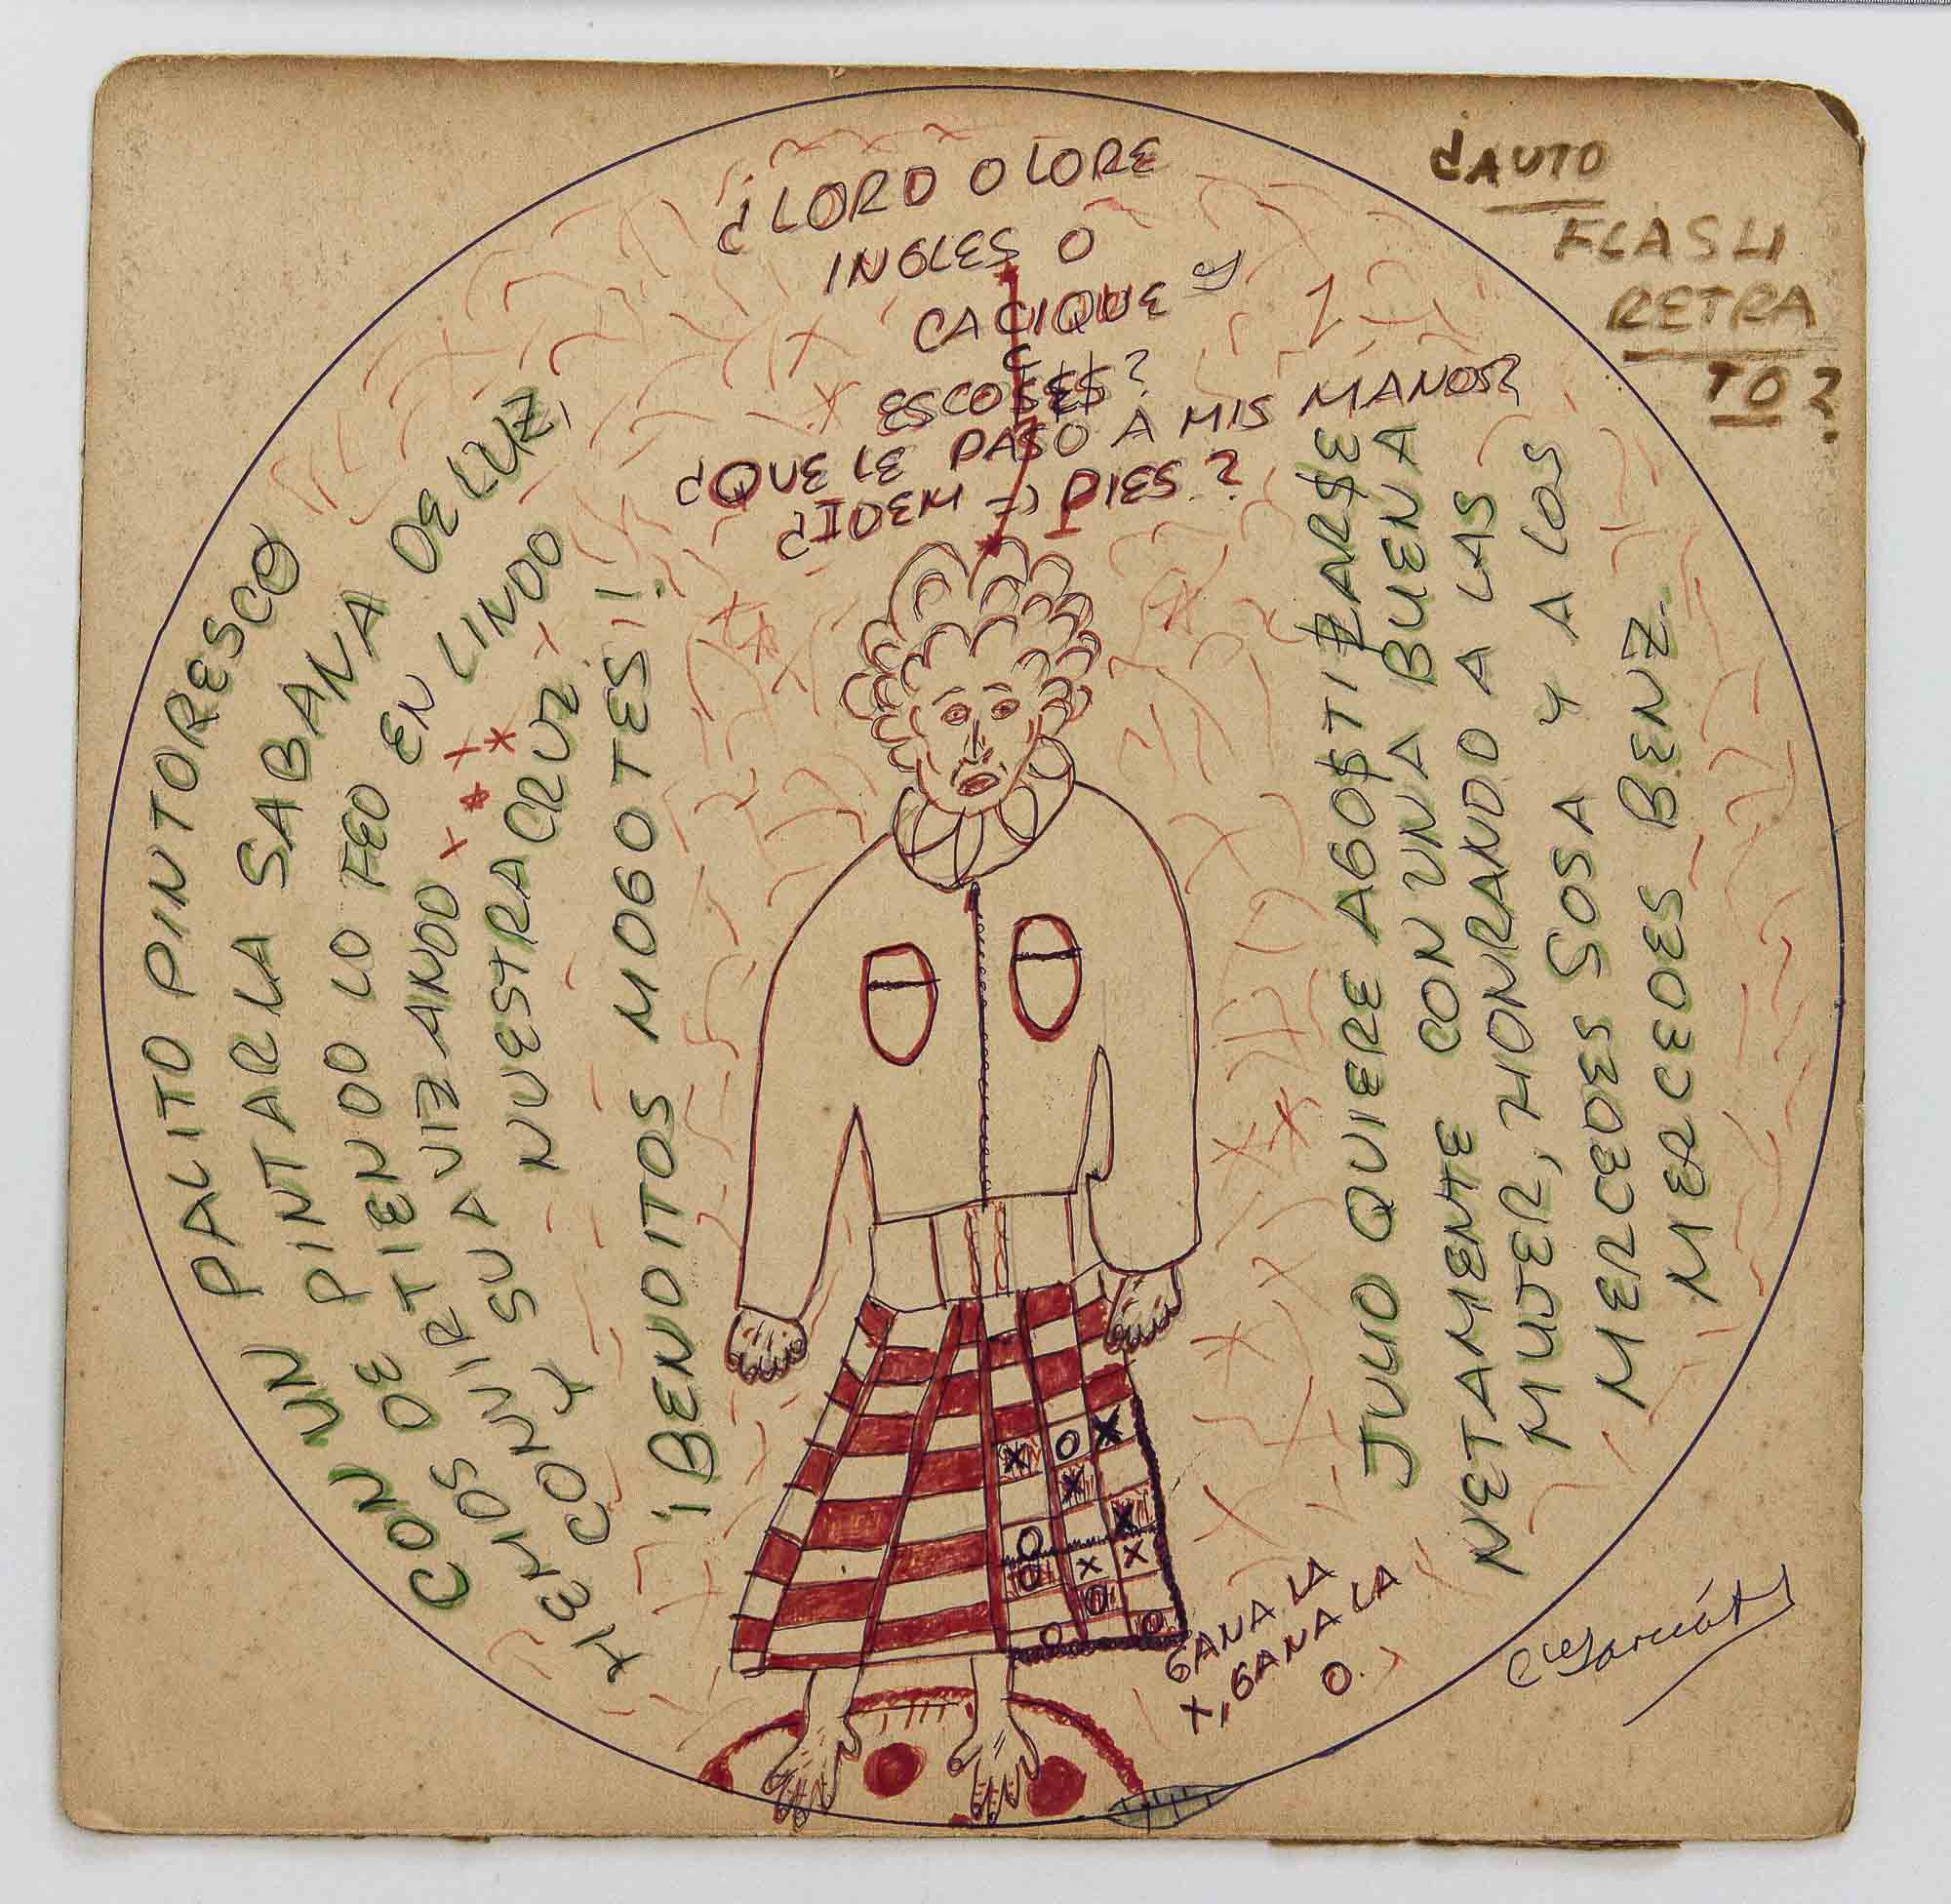 ¿LORD O LORE
INGLES O
CACIQUE Y
ESCO$E$?
¿QUE LE PASO A MIS MANOS?
¿IDEM => PIES?
¿AUTO
FLASH
RETRA
TO?
CON UN PALITO PINTORESCO
HEMOS DE PINTAR LA SABANA DE LUZ,
CONVIRTIENDO LO FEO EN LINDO
Y SUAVIZANDO
NUESTRA CRUZ.
¡BENDITOS MOGOTES!!
JULIO QUIERE AGO$TIZAR$E
NETAMENTE CON UNA BUENA
MUJER, HONRANDO A LAS
MERCEDES SOSA Y A LOS
MERCEDES BENZ.
GANA LA
X, GANA LA
O.